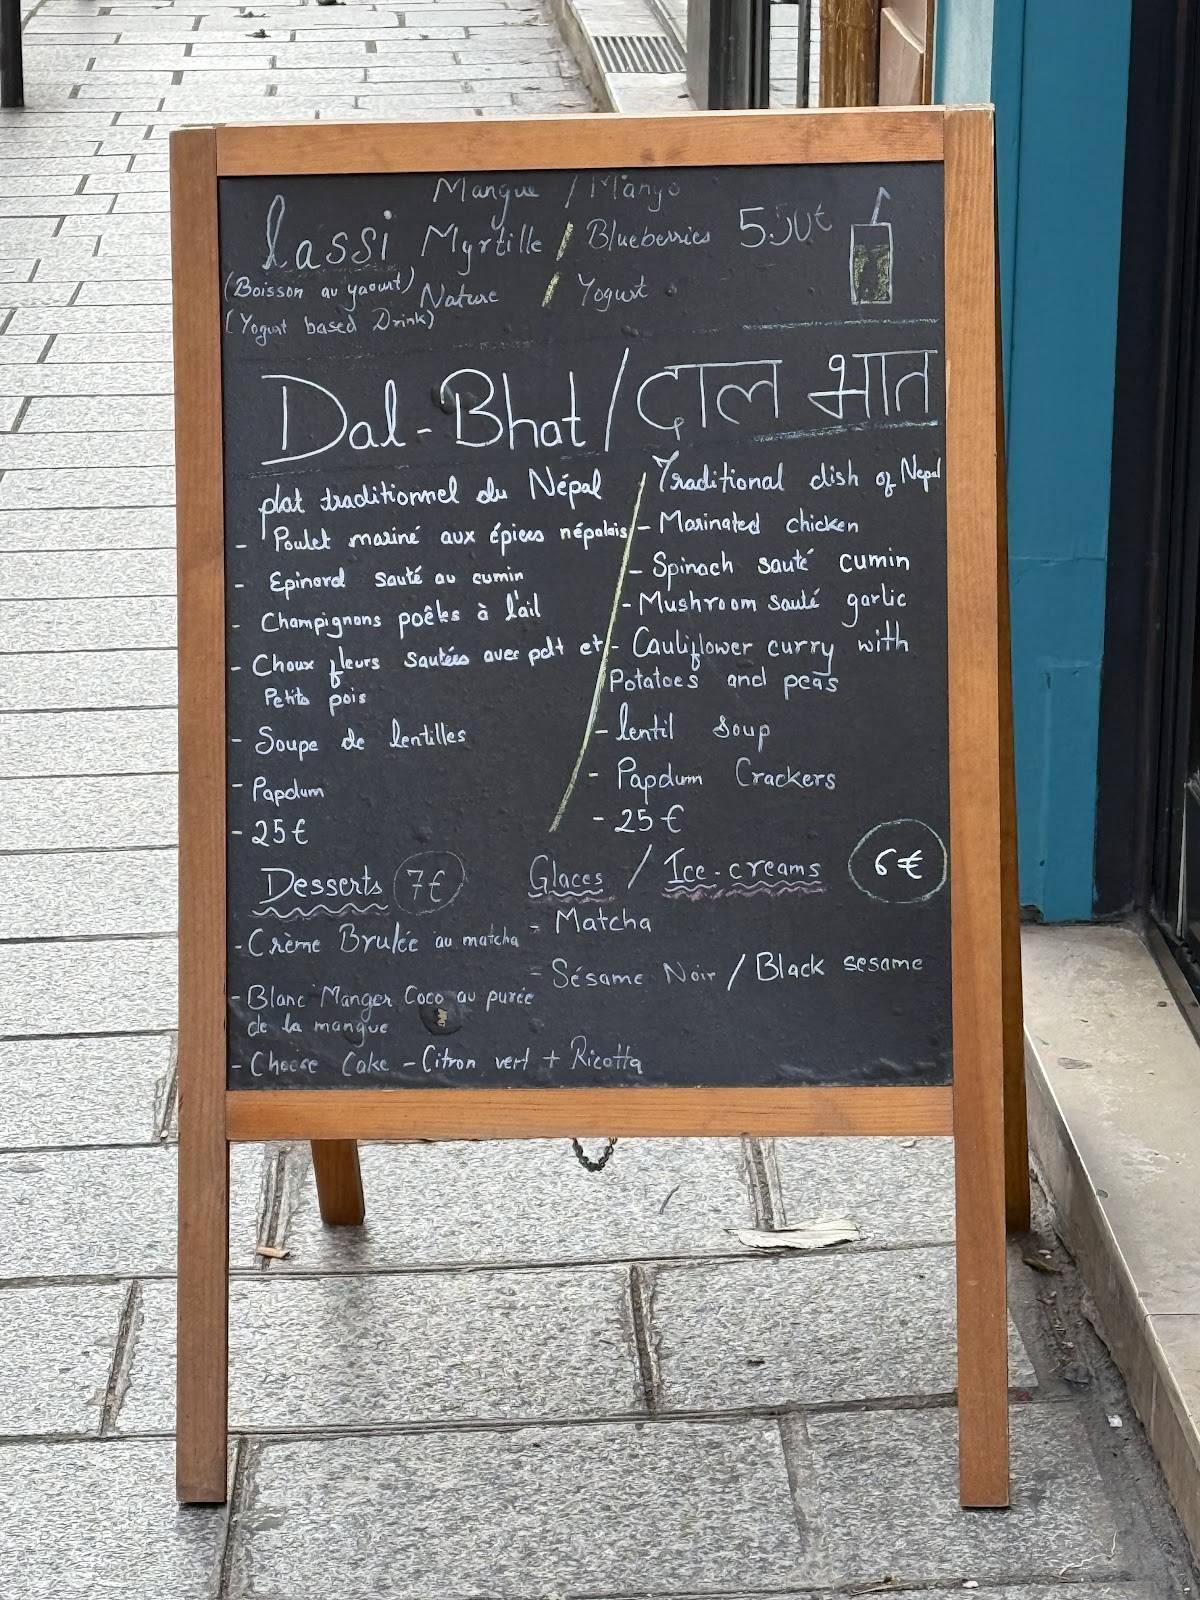 Mangue / Mango
Lassi Myrtille / Blueberries 5.50€
(Boisson au yaourt) Nature / Yogurt
(Yogurt based Drink)
Dal-Bhat / दाल भात
plat traditionnel du Népal
- Poulet mariné aux épices népalais
- Epinard sauté au cumin
- Champignons poêles à l'ail
- Choux fleurs sautées avec pdt et
Petits pois
- Soupe de lentilles
- Papdum
- 25€
Traditional dish of Nepal
- Marinated chicken
- Spinach sauté cumin
- Mushroom sauté garlic
- Cauliflower curry with
Potatoes and peas
- lentil soup
- Papdum Crackers
- 25€
Desserts 7€
- Crème Brulée au matcha
- Blanc Manger Coco au purée
de la mangue
- Cheese Cake - Citron vert + Ricotta
Glaces / Ice-creams 6€
- Matcha
- Sésame Noir / Black sesame